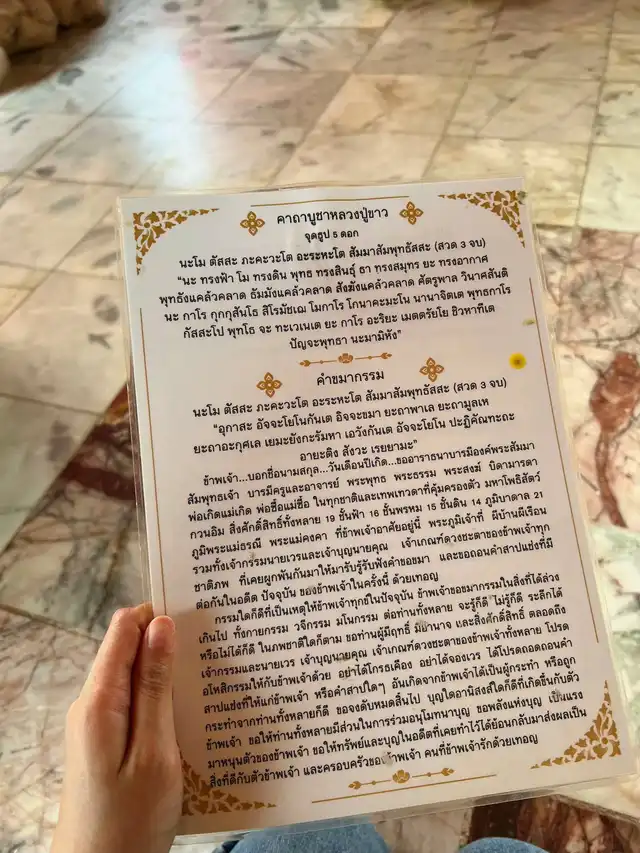 คาถาบูชาหลวงปู่ขาว
จุดธูป 5 ดอก
นะโม ตัสสะ ภะคะวะโต อะระหะโต สัมมาสัมพุทธัสสะ (สวด 3 จบ)
"นะ ทรงฟ้า โม ทรงดิน พุทธ ทรงสินธุ์ ธา ทรงสมุทร ยะ ทรงอากาศ
พุทธังแคล้วคลาด ธัมมังแคล้วคลาด สังฆังแคล้วคลาด ศัตรูพาล วินาศสันติ
นะ กาโร กุกกุสันโธ สิโรมัชเฌ โมกาโร โกนาคะมะโน นานาจิตเต พุทธกาโร
กัสสะโป พุทโธ จะ ทะเวเนเต ยะ กาโร อะริยะ เมตตรัยโย ชิวหาทีเต
ปัญจะพุทธา นะมามิหัง"
คำขมากรรม
นะโม ตัสสะ ภะคะวะโต อะระหะโต สัมมาสัมพุทธัสสะ (สวด 3 จบ)
"อุกาสะ อัจจะโยโนภันเต อัจจะขมา ยะถาพาเล ยะถามูลเห
ยะถาอะกุศเล เยมะยังกะรัมหา เอวังภันเต อัจจะโยโน ปะฏิคัณทะถะ
อายะติง สังวะ เรยยามะ"
ข้าพเจ้า...บอกชื่อนามสกุล...วันเดือนปีเกิด...ขออาราธนาบารมีองค์พระสัมมา
สัมพุทธเจ้า บารมีครูและอาจารย์ พระพุทธ พระธรรม พระสงฆ์ บิดามารดา
พ่อเกิดแม่เกิด พ่อซื้อแม่ซื้อ ในทุกชาติและเทพเทวดาที่คุ้มครองตัว มหาโพธิสัตว์
กวนอิม สิ่งศักดิ์สิทธิ์ทั้งหลาย 19 ชั้นฟ้า 16 ชั้นพรหม 15 ชั้นดิน 14 ภูมิบาดาล 21
ภูมิพระแม่ธรณี พระแม่คงคา ที่ข้าพเจ้าอาศัยอยู่นี้ พระภูมิเจ้าที่ ผีบ้านผีเรือน
รวมทั้งเจ้ากรรมนายเวรและเจ้าบุญนายคุณ เจ้าเกณฑ์ดวงชะตาของข้าพเจ้าทุก
ชาติภพ ที่เคยผูกพันกันมาให้มารับรู้รับฟังคำขอขมา และขอถอนคำสาปแช่งที่มี
ต่อกันในอดีต ปัจจุบัน ของข้าพเจ้าในครั้งนี้ ด้วยเทอญ
กรรมใดก็ดีที่เป็นเหตุให้ข้าพเจ้าทุกข์ในปัจจุบัน ข้าพเจ้าขอขมากรรมในสิ่งที่ได้ล่วง
เกินไป ทั้งกายกรรม วจีกรรม มโนกรรม ต่อท่านทั้งหลาย จะรู้ก็ดี ไม่รู้ก็ดี ระลึกได้
หรือไม่ได้ก็ดี ในภพชาติใดก็ตาม ขอท่านผู้มีฤทธิ์ มีอำนาจ และสิ่งศักดิ์สิทธิ์ ตลอดถึง
เจ้ากรรมและนายเวร เจ้าบุญนายคุณ เจ้าเกณฑ์ดวงชะตาของข้าพเจ้าทั้งหลาย โปรด
อโหสิกรรมให้กับข้าพเจ้าด้วย อย่าได้โกรธเคือง อย่าได้จองเวร ได้โปรดถอดถอนคำ
สาปแช่งที่ให้แก่ข้าพเจ้า หรือคำสาปใดๆ อันเกิดจากข้าพเจ้าได้เป็นผู้กระทำ หรือถูก
กระทำจากท่านทั้งหลายก็ดี ขอจงดับหมดสิ้นไป บุญใดอานิสงส์ใดก็ดีที่เกิดขึ้นกับตัว
ข้าพเจ้า ขอให้ท่านทั้งหลายมีส่วนในการร่วมอนุโมทนาบุญ ขอพลังแห่งบุญ เป็นแรง
มาหนุนตัวของข้าพเจ้า ขอให้ทรัพย์และบุญในอดีตที่เคยทำไว้ได้ย้อนกลับมาส่งผลเป็น
สิ่งที่ดีกับตัวข้าพเจ้า และครอบครัวของข้าพเจ้า คนที่ข้าพเจ้ารักด้วยเทอญ